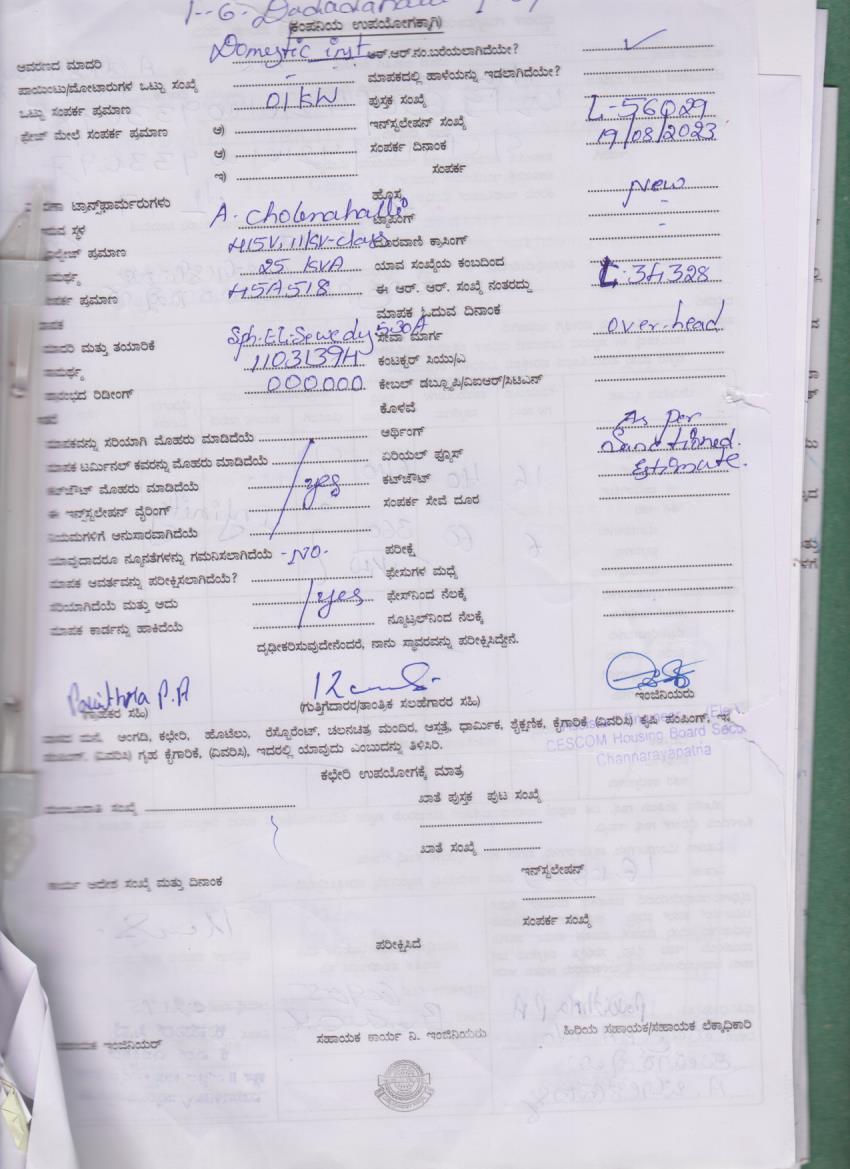 (ಕಂಪನಿಯ ಉಪಯೋಗಕ್ಕಾಗಿ)
ಆವರಣದ ಮಾದರಿ Domestic inst ಆರ್.ಆರ್.ನಂ.ಬರೆಯಲಾಗಿದೆಯೇ? ✓
ಪಾಯಿಂಟು/ಮೋಟಾರುಗಳ ಒಟ್ಟು ಸಂಖ್ಯೆ - ಮಾಪಕದಲ್ಲಿ ಹಾಳೆಯನ್ನು ಇಡಲಾಗಿದೆಯೇ?
ಒಟ್ಟು ಸಂಪರ್ಕ ಪ್ರಮಾಣ 01 KW ಪುಸ್ತಕ ಸಂಖ್ಯೆ L-56029
ಫೇಜ್ ಮೇಲೆ ಸಂಪರ್ಕ ಪ್ರಮಾಣ ಅ) ಇನ್‌ಸ್ಟಲೇಷನ್ ಸಂಖ್ಯೆ 19/08/2023
ಆ) ಸಂಪರ್ಕ ದಿನಾಂಕ
ಇ) ಸಂಪರ್ಕ
ಟ್ರಾನ್ಸ್‌ಫಾರ್ಮರುಗಳು ಹೊಸ New
ಸ್ಥಳ A. Cholenahalli ಟ್ಯಾಪಿಂಗ್ -
ಪ್ರಮಾಣ 415V, 11KV-class ದೂರವಾಣಿ ಕ್ರಾಸಿಂಗ್ -
25 KVA ಯಾವ ಸಂಖ್ಯೆಯ ಕಂಬದಿಂದ
ಪ್ರಮಾಣ 45A518 ಈ ಆರ್. ಆರ್. ಸಂಖ್ಯೆ ನಂತರದ್ದು L-34328
ಮಾಪಕ ಓದುವ ದಿನಾಂಕ
ಮಾದರಿ ಮತ್ತು ತಯಾರಿಕೆ Sph.El.Sewedy 5-30A ಸೇವಾ ಮಾರ್ಗ Over-head
11031394 ಕಂಟಕ್ಟರ್ ಸಿಯು/ಎ
ರಿಡೀಂಗ್ 000000 ಕೇಬಲ್ ಡಬ್ಲ್ಯೂಪಿ/ವಿಐಆರ್/ಸಿಟಿಎನ್
ಕೊಳವೆ
ಮಾಪಕವನ್ನು ಸರಿಯಾಗಿ ಮೊಹರು ಮಾಡಿದೆಯೆ ಅರ್ಥಿಂಗ್ As per
ಮಾಪಕ ಟರ್ಮಿನಲ್ ಕವರನ್ನು ಮೊಹರು ಮಾಡಿದೆಯೆ ಏರಿಯಲ್ ಫ್ಯೂಸ್ Sanctioned.
ಕಟ್‌ಔಟ್ ಮೊಹರು ಮಾಡಿದೆಯೆ yes ಕಟ್‌ಔಟ್ Estimate.
ಈ ಇನ್‌ಸ್ಟಲೇಷನ್ ವೈರಿಂಗ್ ಸಂಪರ್ಕ ಸೇವೆ ದೂರ
ನಿಯಮಗಳಿಗೆ ಅನುಸಾರವಾಗಿದೆಯೆ
ಯಾವುದಾದರೂ ನ್ಯೂನತೆಗಳನ್ನು ಗಮನಿಸಲಾಗಿದೆಯೆ -NO- ಪರೀಕ್ಷೆ
ಮಾಪಕ ಆವರ್ತವನ್ನು ಪರೀಕ್ಷಿಸಲಾಗಿದೆಯೆ? ಫೇಸುಗಳ ಮಧ್ಯೆ
ಸರಿಯಾಗಿದೆಯೆ ಮತ್ತು ಅದು yes ಫೇಸ್‌ನಿಂದ ನೆಲಕ್ಕೆ
ಮಾಪಕ ಕಾರ್ಡನ್ನು ಹಾಕಿದೆಯೆ ನ್ಯೂಟ್ರಲ್‌ನಿಂದ ನೆಲಕ್ಕೆ
ದೃಢೀಕರಿಸುವುದೇನೆಂದರೆ, ನಾನು ಸ್ಥಾವರವನ್ನು ಪರೀಕ್ಷಿಸಿದ್ದೇನೆ.
Pavithra P.A
(ಗ್ರಾಹಕರ ಸಹಿ) (ಗುತ್ತಿಗೆದಾರರ/ತಾಂತ್ರಿಕ ಸಲಹೆಗಾರರ ಸಹಿ) ಇಂಜಿನಿಯರು
ಮನೆ, ಅಂಗಡಿ, ಕಛೇರಿ, ಹೊಟೆಲು, ರೆಸ್ಟೋರೆಂಟ್, ಚಲನಚಿತ್ರ ಮಂದಿರ, ಆಸ್ಪತ್ರೆ, ಧಾರ್ಮಿಕ, ಶೈಕ್ಷಣಿಕ, ಕೈಗಾರಿಕೆ (ವಿವರಿಸಿ) ಕೃಷಿ ಪಂಪಿಂಗ್,
(ವಿವರಿಸಿ) ಗೃಹ ಕೈಗಾರಿಕೆ, (ವಿವರಿಸಿ), ಇದರಲ್ಲಿ ಯಾವುದು ಎಂಬುದನ್ನು ತಿಳಿಸಿರಿ.
CESCOM Housing Board
Channarayapatna
ಕಛೇರಿ ಉಪಯೋಗಕ್ಕೆ ಮಾತ್ರ
ಸಂಖ್ಯೆ ಖಾತೆ ಪುಸ್ತಕ ಪುಟ ಸಂಖ್ಯೆ
ಖಾತೆ ಸಂಖ್ಯೆ
ಕಾರ್ಯ ಆದೇಶ ಸಂಖ್ಯೆ ಮತ್ತು ದಿನಾಂಕ ಇನ್‌ಸ್ಟಲೇಷನ್
ಸಂಪರ್ಕ ಸಂಖ್ಯೆ
ಪರೀಕ್ಷಿಸಿದೆ
ಇಂಜಿನಿಯರ್ ಸಹಾಯಕ ಕಾರ್ಯ ನಿ. ಇಂಜಿನಿಯರು ಹಿರಿಯ ಸಹಾಯಕ/ಸಹಾಯಕ ಲೆಕ್ಕಾಧಿಕಾರಿ